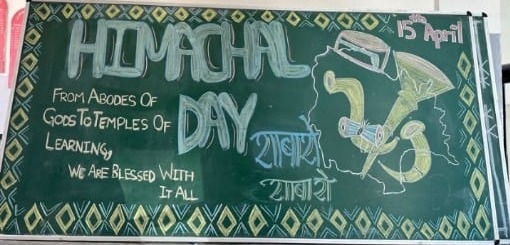 HIMACHAL
DAY
15th April
FROM ABODES OF
GODS TO TEMPLES OF
LEARNING,
WE ARE BLESSED WITH
IT ALL
शाबाशे
शाबाशे